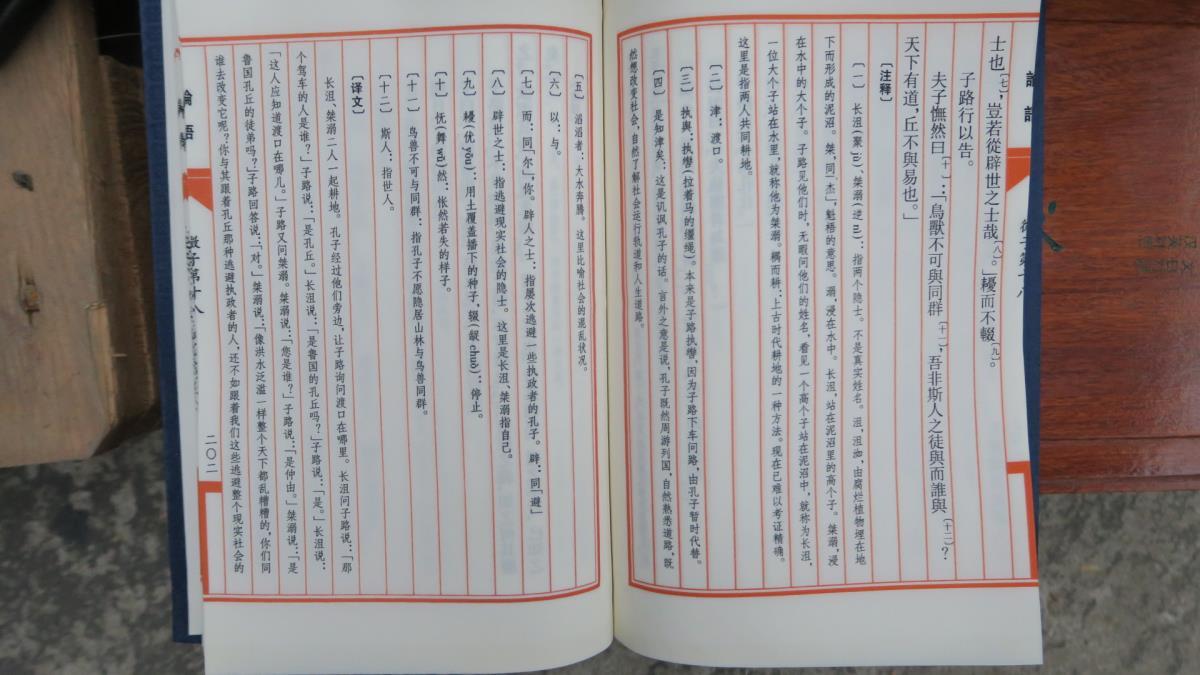 士也〔七〕，豈若從辟世之士哉〔八〕。」耰而不輟〔九〕。
子路行以告。
夫子憮然曰〔十〕：「鳥獸不可與同群〔十一〕，吾非斯人之徒與而誰與〔十二〕？
天下有道，丘不與易也。」
〔注释〕
〔一〕 长沮(聚 jù)、桀溺(逆 nì)：指两个隐士。不是真实姓名。沮，沮洳，由腐烂植物埋在地
下而形成的泥沼。桀，同「杰」，魁梧的意思。溺，浸在水中。长沮，站在泥沼里的高个子。桀溺，浸
在水中的大个子。子路见他们时，无暇问他们的姓名，看见一个高个子站在泥沼中，就称为长沮，
一位大个子站在水里，就称他为桀溺。耦而耕：上古时代耕地的一种方法。现在已难以考证精确。
这里是指两人共同耕地。
〔二〕 津：渡口。
〔三〕 执舆：执辔(拉着马的缰绳)。本来是子路执辔，因为子路下车问路，由孔子暂时代替。
〔四〕 是知津矣：这是讥讽孔子的话。言外之意是说，孔子既然周游列国，自然熟悉道路，既
然想改变社会，自然了解社会运行轨道和人生道路。
〔五〕 滔滔者：大水奔腾。这里比喻社会的混乱状况。
〔六〕 以：与。
〔七〕 而：同「尔」，你。辟人之士：指屡次逃避一些执政者的孔子。辟：同「避」
〔八〕 辟世之士：指逃避现实社会的隐士。这里是长沮、桀溺指自己。
〔九〕 耰(优 yōu)：用土覆盖播下的种子，辍(龊 chuò)：停止。
〔十〕 怃(舞 wǔ)然：怅然若失的样子。
〔十一〕 鸟兽不可与同群：指孔子不愿隐居山林与鸟兽同群。
〔十二〕 斯人：指世人。
〔译文〕
长沮、桀溺二人一起耕地。孔子经过他们旁边，让子路询问渡口在哪里。长沮问子路说：「那
个驾车的人是谁？」子路说：「是孔丘。」长沮说：「是鲁国的孔丘吗？」子路说：「是。」长沮说：
「这人应知道渡口在哪儿。」子路又问桀溺。桀溺说：「您是谁？」子路说：「是仲由。」桀溺说：「是
鲁国孔丘的徒弟吗？」子路回答说：「对。」桀溺说：「像洪水泛滥一样整个天下都乱糟糟的，你们同
谁去改变它呢？你与其跟着孔丘那种逃避执政者的人，还不如跟着我们这些逃避整个现实社会的
論語
微子第十八
二〇二